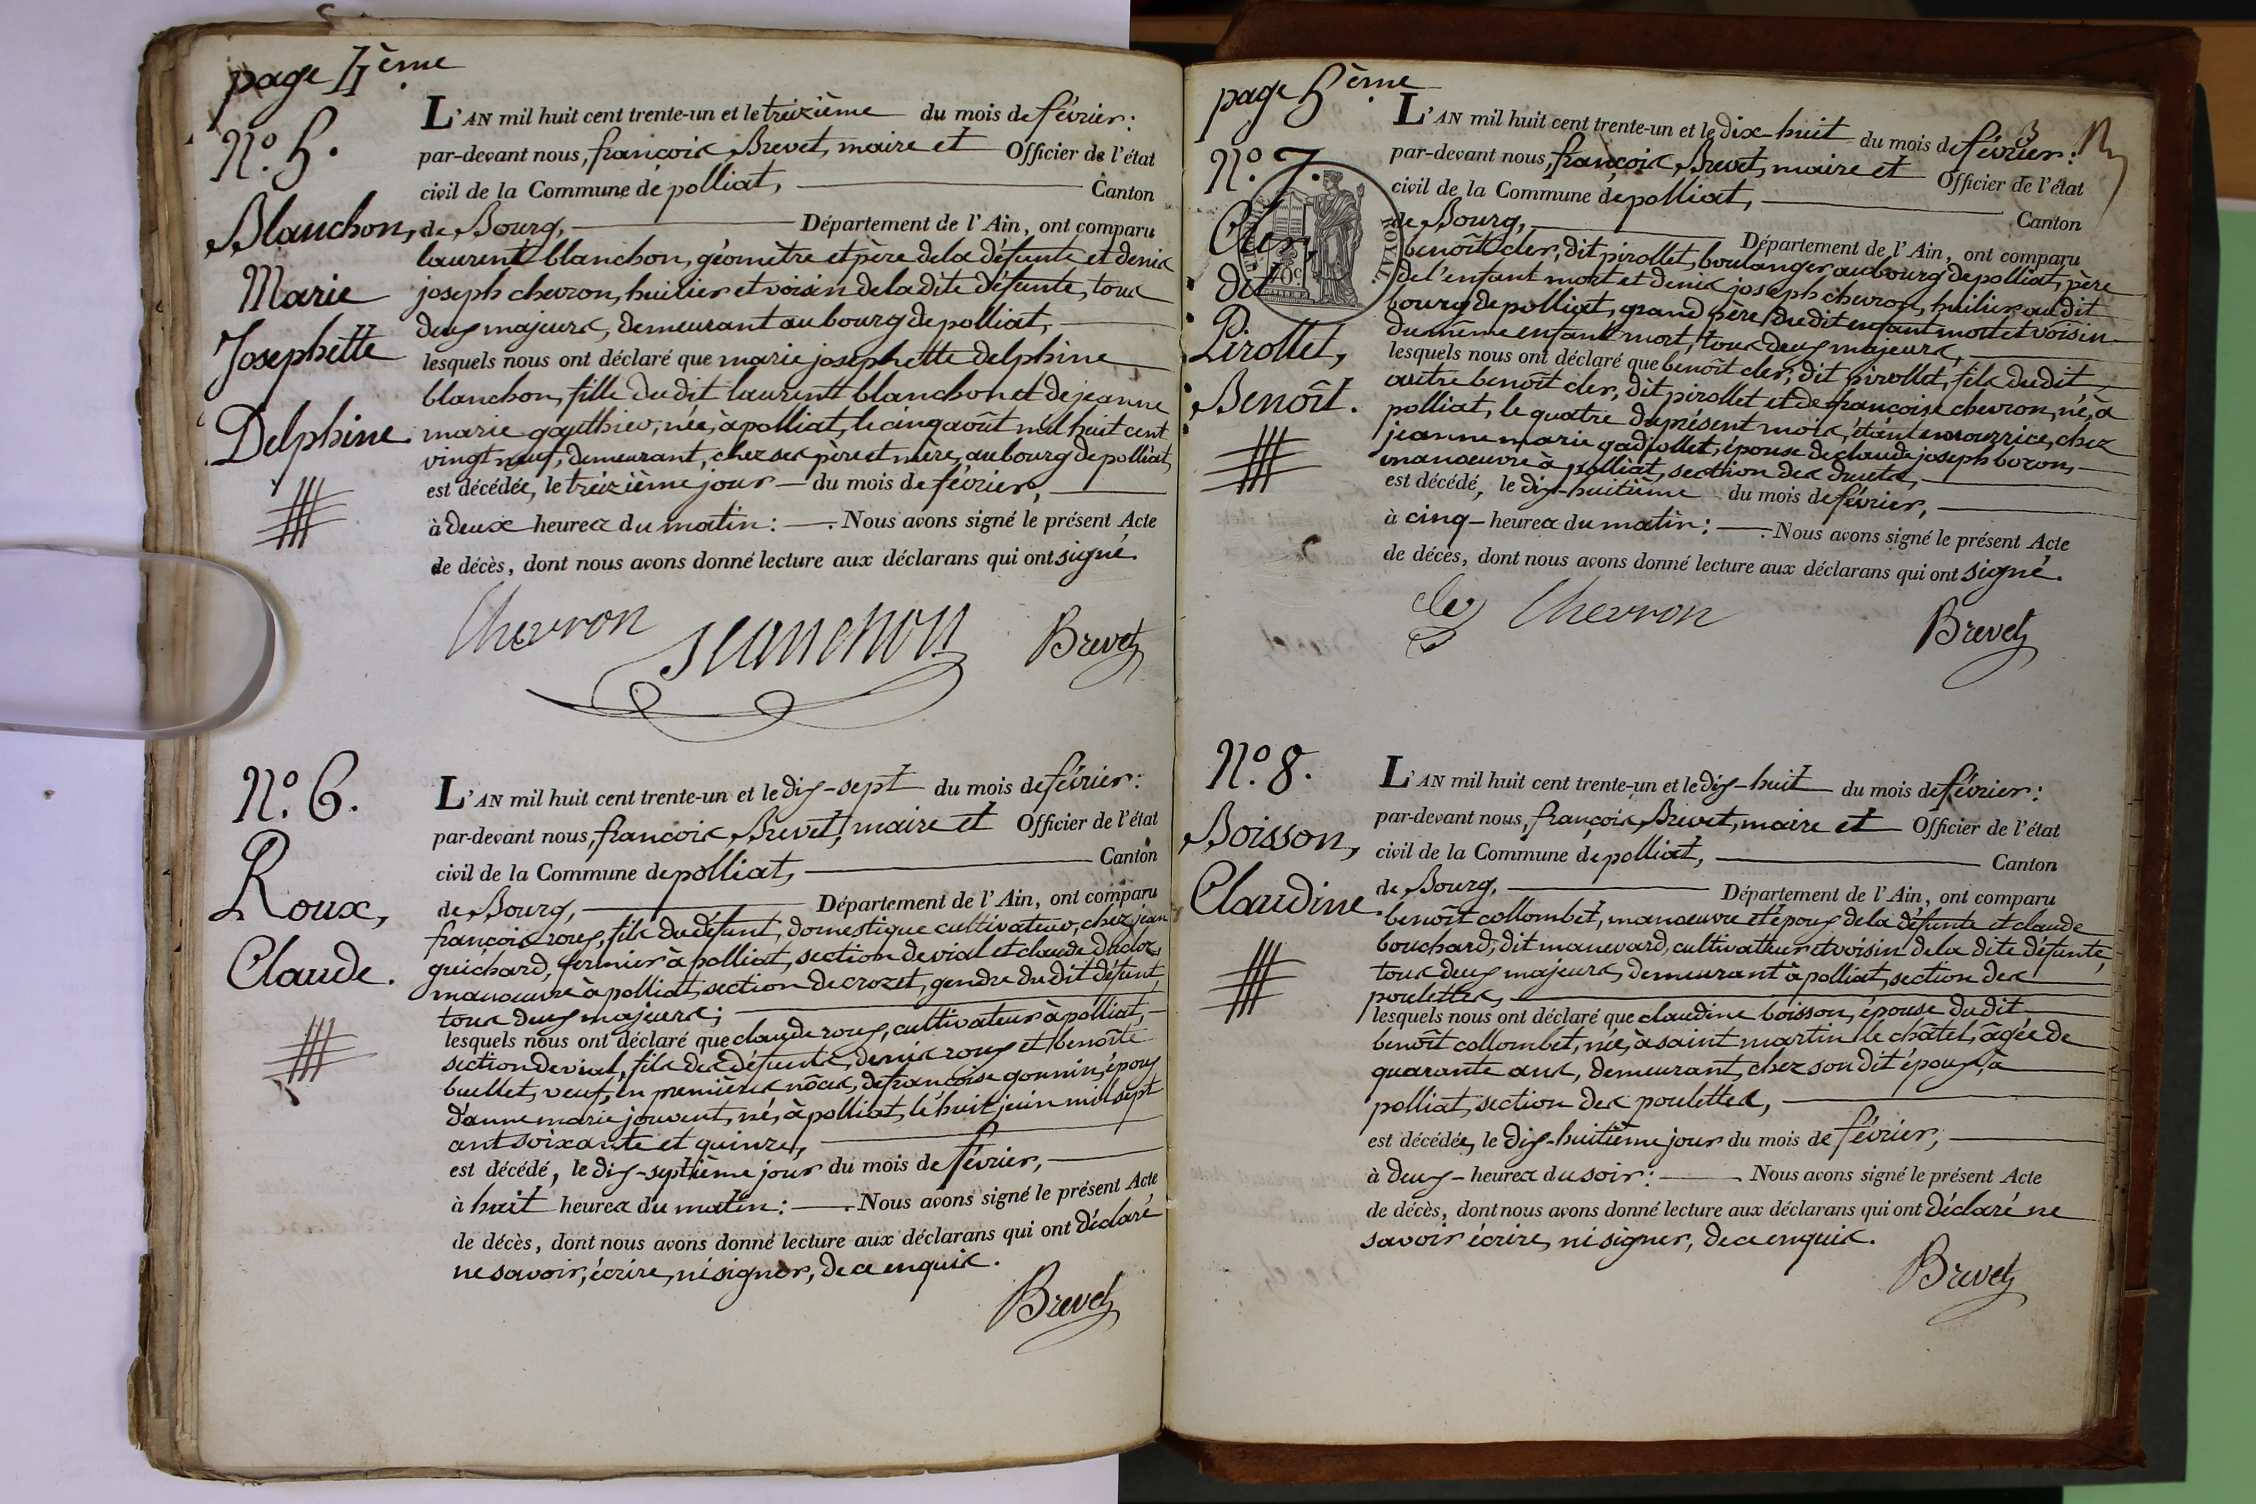 page 4ème
N.º 5.
Blanchon,
Marie
Josephette
Delphine
L'AN mil huit cent trente-un et le treizième du mois de février:
par-devant nous, françois Brevet, maire et Officier de l'état
civil de la Commune de polliat, Canton
de Bourg, Département de l'Ain, ont comparu
laurent blanchon, géomètre et père de la défunte et denis
joseph chevron, huilier et voisin de la dite défunte, tous
deux majeurs, demeurant au bourg de polliat,
lesquels nous ont déclaré que marie josephette delphine
blanchon, fille du dit laurent blanchon et de jeanne
marie gauthier, née, à polliat, le cinq août mil huit cent
vingt neuf, demeurant, chez ses père et mère, au bourg de polliat,
est décédée, le treizième jour du mois de février,
à deux heures du matin: Nous avons signé le présent Acte
de décès, dont nous avons donné lecture aux déclarans qui ont signé.
Chevron Blanchon Brevet
N.º 6.
Roux,
Claude.
L'AN mil huit cent trente-un et le dix-sept du mois de février:
par-devant nous, françois Brevet, maire et Officier de l'état
civil de la Commune de polliat, Canton
de Bourg, Département de l'Ain, ont comparu
françois roux, fils du défunt, domestique cultivateur, chez jean
guichard, fermier à polliat, section de vial et claude duclos,
manoeuvre à polliat, section de crozet, gendre du dit défunt,
tous deux majeurs;
lesquels nous ont déclaré que claude roux, cultivateur à polliat,
section de vial, fils des défunts, denis roux et benoîte
buellet, veuf, en premières nôces, de françoise gonnin, époux
d'anne marie jouvent, né, à polliat, le huit juin mil sept
cent soixante et quinze,
est décédé, le dix-septième jour du mois de février,
à huit heures du matin: Nous avons signé le présent Acte
de décès, dont nous avons donné lecture aux déclarans qui ont déclaré
ne savoir, écrire, ni signer, de ce enquis.
Brevet
page 5ème
3
N.º 7.
Cler,
dit
Pirollet,
Benoît.
ROYAL
L'AN mil huit cent trente-un et le dix-huit du mois de février:
par-devant nous, françois Brevet, maire et Officier de l'état
civil de la Commune de polliat, Canton
de Bourg, Département de l'Ain, ont comparu
benoît cler, dit pirollet, boulanger au bourg de polliat, père
de l'enfant mort et denis joseph chevron, huilier au dit
bourg de polliat, grand père du dit enfant mort et voisin
du même enfant mort, tous deux majeurs,
lesquels nous ont déclaré que benoît cler, dit pirollet, fils du dit
autre benoît cler, dit pirollet et de françoise chevron, né, à
polliat, le quatre du présent mois, étant en nourrice, chez
jeanne marie gadiollet, épouse de claude joseph boron,
manoeuvre à polliat, section des druets,
est décédé, le dix-huitième du mois de février,
à cinq heures du matin: Nous avons signé le présent Acte
de décès, dont nous avons donné lecture aux déclarans qui ont signé.
Cler Chevron Brevet
N.º 8.
Boisson,
Claudine.
L'AN mil huit cent trente-un et le dix-huit du mois de février:
par-devant nous, françois Brevet, maire et Officier de l'état
civil de la Commune de polliat, Canton
de Bourg, Département de l'Ain, ont comparu
benoît collombet, manoeuvre et époux de la défunte et claude
bouchard, dit manevard, cultivateur et voisin de la dite défunte,
tous deux majeurs, demeurant à polliat, section des
poulettes,
lesquels nous ont déclaré que claudine boisson, épouse du dit
benoît collombet, née, à saint martin le châtel, âgée de
quarante ans, demeurant, chez son dit époux, à
polliat, section des poulettes,
est décédée, le dix-huitième jour du mois de février,
à deux heures du soir: Nous avons signé le présent Acte
de décès, dont nous avons donné lecture aux déclarans qui ont déclaré ne
savoir écrire, ni signer, de ce enquis.
Brevet